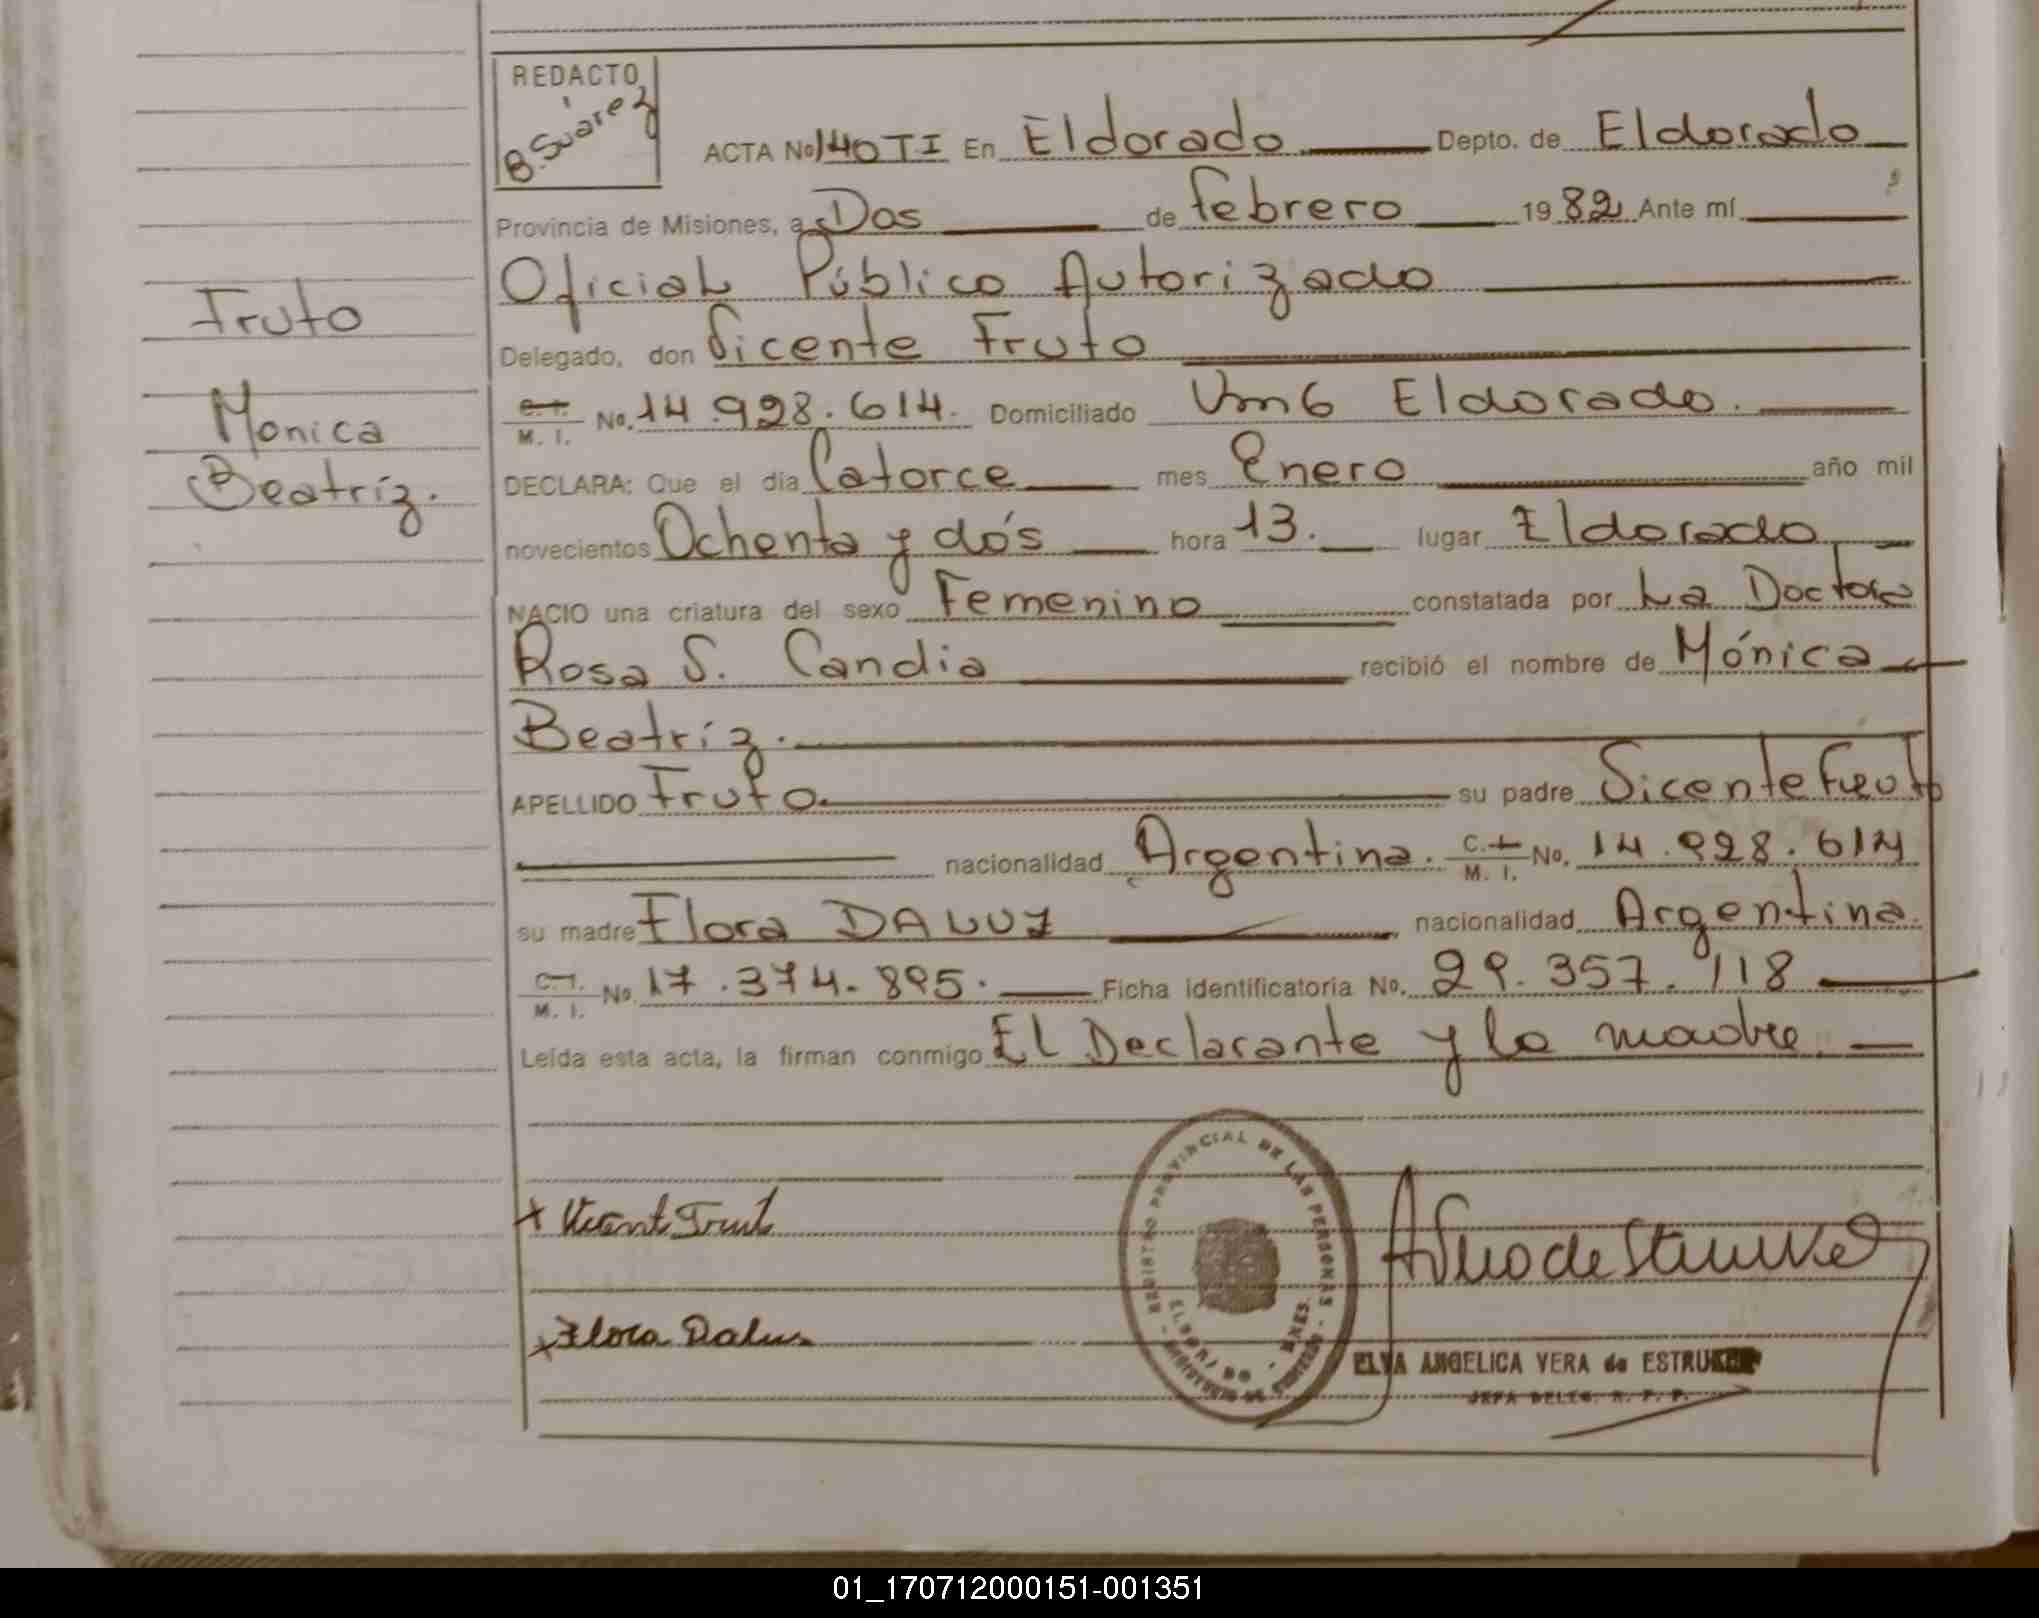 REDACTO
B. Suárez
ACTA No 140 TI En Eldorado Depto. de Eldorado
Provincia de Misiones, a Dos de febrero 1982 Ante mí
Oficial Público Autorizado
Fruto
Delegado, don Vicente Fruto
C. I. M. I. No. 14.928.614. Domiciliado Km 6 Eldorado.
Monica
DECLARA: Que el día Catorce mes Enero año mil
Beatríz.
novecientos Ochenta y dós hora 13. lugar Eldorado
NACIO una criatura del sexo Femenino constatada por La Doctora
Rosa S. Candia recibió el nombre de Mónica
Beatríz.
APELLIDO Fruto. su padre Vicente Fruto
nacionalidad Argentina. C. I. M. I. No. 14.928.614
su madre Flora DA LUZ nacionalidad Argentina.
C. I. M. I. No. 17.374.895. Ficha identificatoria No. 29.357.118
Leída esta acta, la firman conmigo El Declarante y la madre.
REGISTRO PROVINCIAL DE LAS PERSONAS
ELDORADO - MNES.
+ Vicente Frut
x Flora Dalus
ELVA ANGELICA VERA de ESTRUKEL
JEFA DELEG. R. P. P.
01_170712000151-001351